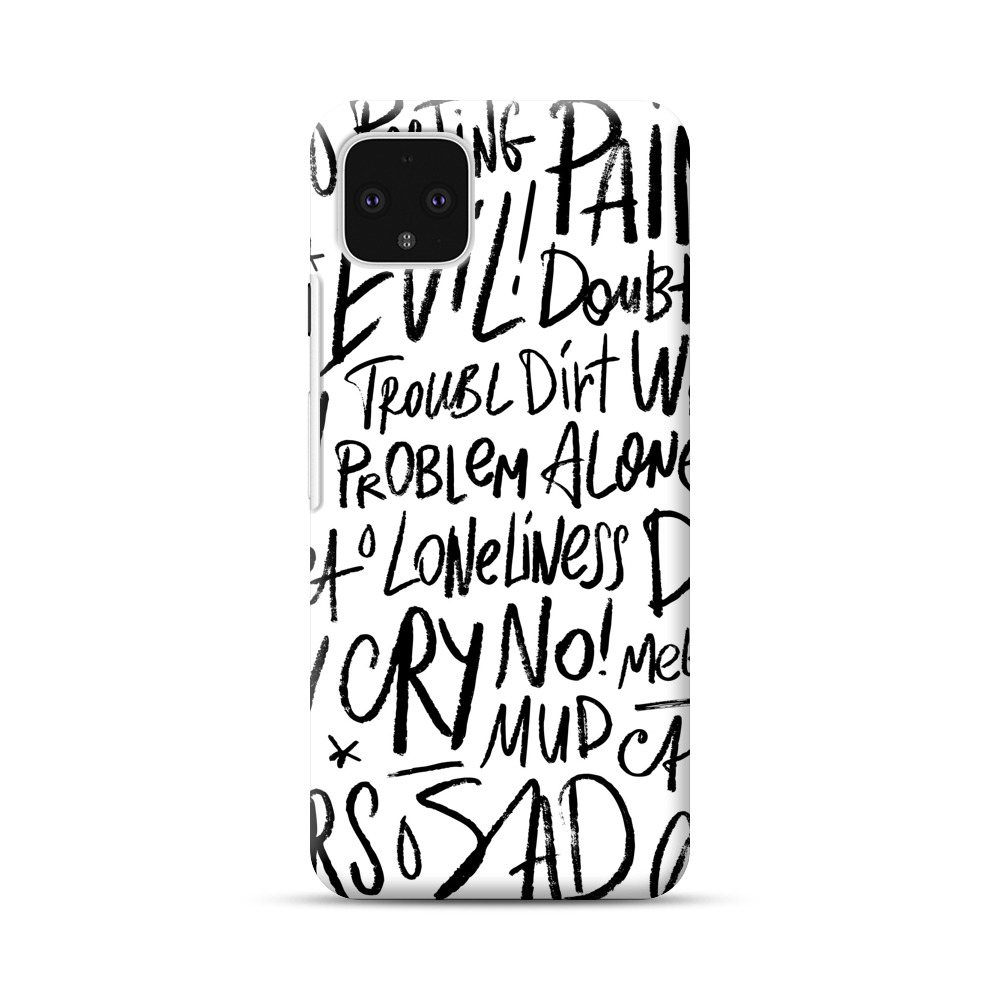 PAIN
EVIL! DOUBT
TROUBL Dirt
PROBLEM ALONE
LONELINESS D
CRY NO! Mel
MUD CA
RS SAD